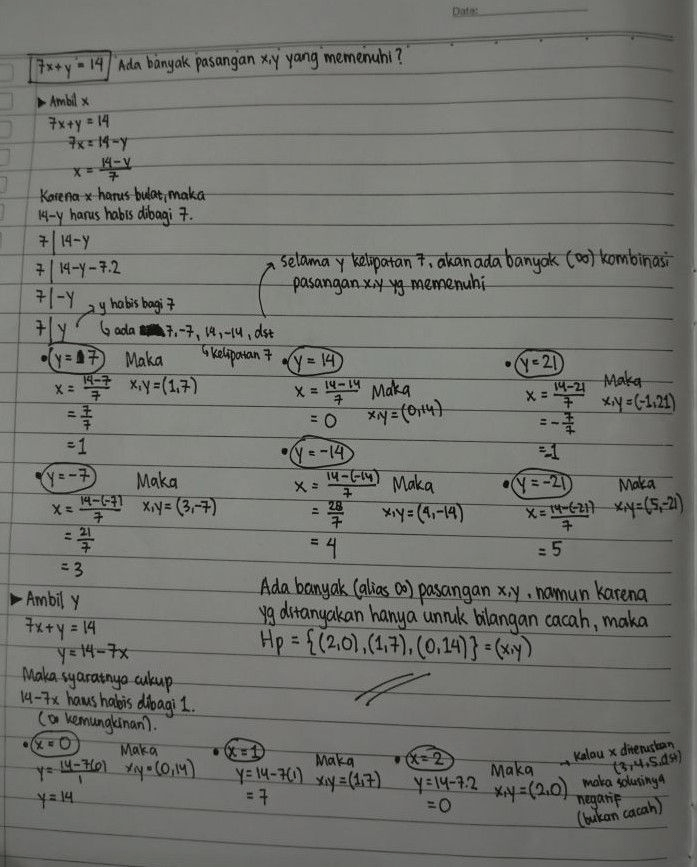 Date:
7x+y=14 Ada banyak pasangan x,y yang memenuhi?
► Ambil x
7x+y=14
7x=14-y
x=\frac{14-y}{7}
Karena x harus bulat, maka
14-y harus habis dibagi 7.
7|14-y
7|14-y-7.2
7|-y
7|y
y habis bagi 7
ada 7,-7, 14, -14, dst
kelipatan 7
selama y kelipatan 7, akan ada banyak (∞) kombinasi
pasangan x,y yg memenuhi
• y=7 Maka
x=\frac{14-7}{7} x,y=(1,7)
=\frac{7}{7}
=1
• y=14
x=\frac{14-14}{7} Maka
=0 x,y=(0,14)
• y=21
x=\frac{14-21}{7} Maka
=-\frac{7}{7} x,y=(-1,21)
=-1
• y=-7 Maka
x=\frac{14-(-7)}{7} x,y=(3,-7)
=\frac{21}{7}
=3
• y=-14
x=\frac{14-(-14)}{7} Maka
=\frac{28}{7} x,y=(4,-14)
=4
• y=-21 Maka
x=\frac{14-(-21)}{7} x,y=(5,-21)
=5
► Ambil y
7x+y=14
y=14-7x
Maka syaratnya cukup
14-7x harus habis dibagi 1.
(∞ kemungkinan).
Ada banyak (alias ∞) pasangan x,y, namun karena
yg ditanyakan hanya unruk bilangan cacah, maka
Hp={(2,0),(1,7),(0,14)}=(x,y)
• x=0 Maka
y=\frac{14-7(0)}{1} x,y=(0,14)
y=14
• x=1 Maka
y=14-7(1) x,y=(1,7)
=7
• x=2 Maka
y=14-7.2 x,y=(2,0)
=0
→ Kalau x diteruskan
(3,4,5,dst)
maka solusinya
negatif
(bukan cacah)